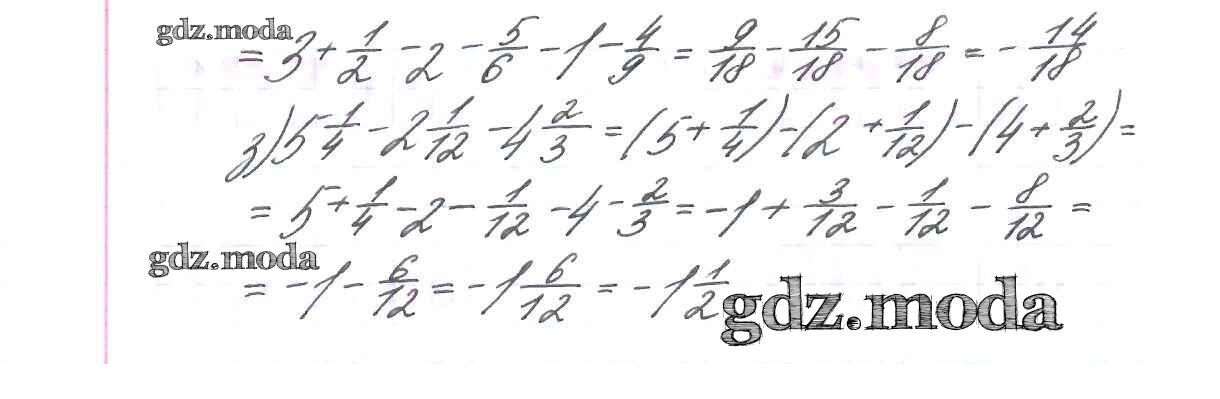 gdz.moda
= 3 + 1/2 - 2 - 5/6 - 1 - 4/9 = 9/18 - 15/18 - 8/18 = - 14/18
з) 5 1/4 - 2 1/12 - 4 2/3 = (5 + 1/4) - (2 + 1/12) - (4 + 2/3) =
= 5 + 1/4 - 2 - 1/12 - 4 - 2/3 = -1 + 3/12 - 1/12 - 8/12 =
gdz.moda
= -1 - 6/12 = -1 6/12 = -1 1/2
gdz.moda